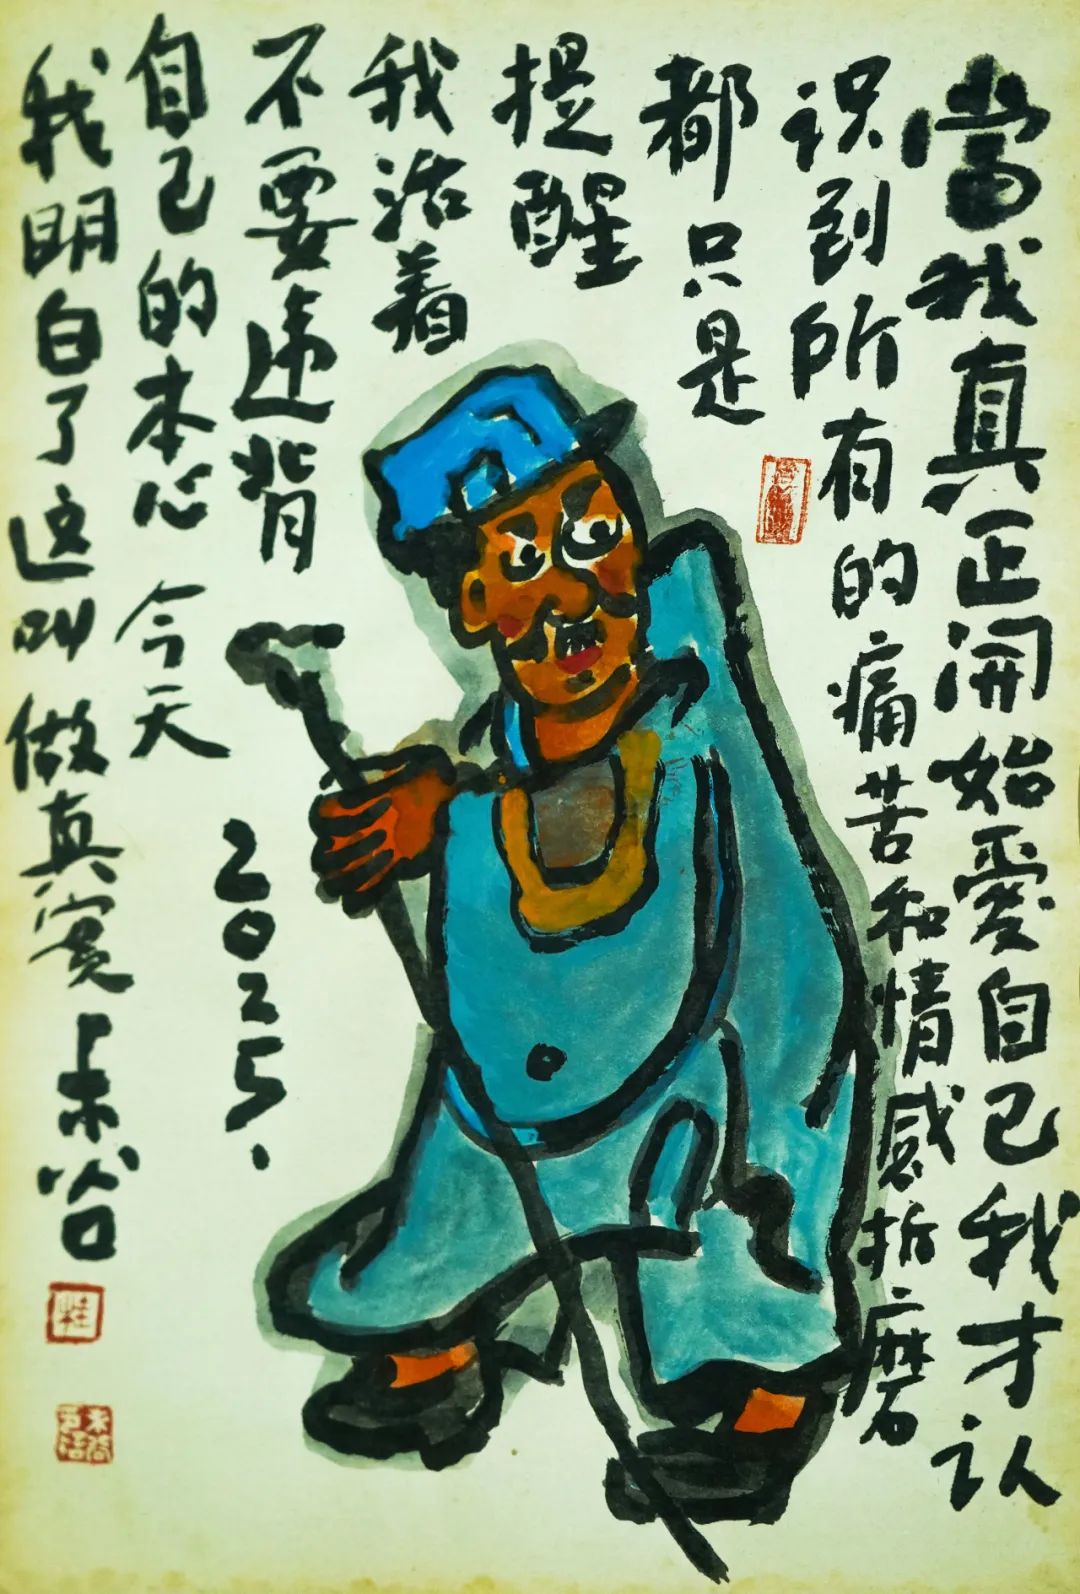 當我真正開始愛自己我才认
识到所有的痛苦和情感折磨
都只是
提醒
我活着
不要违背
自己的本心 今天
我明白了这叫做真實
2025.